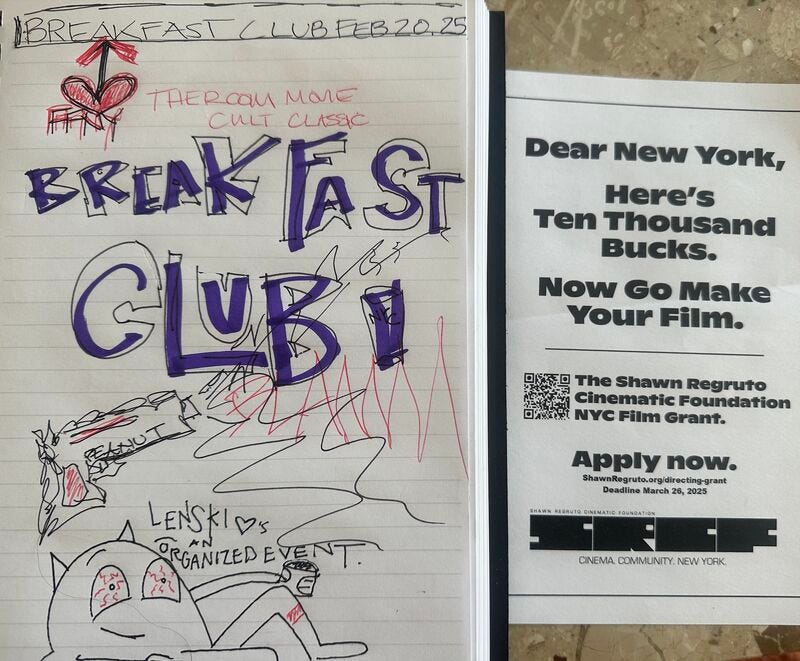 BREAKFAST CLUB FEB 20, 25
THE ROOM MOVIE
CULT CLASSIC
BREAKFAST
CLUB!
NYC
BLAMM
PEANUT
LENSKI ♡'s
AN
ORGANIZED EVENT.
Dear New York,
Here's
Ten Thousand
Bucks.
Now Go Make
Your Film.
The Shawn Regruto
Cinematic Foundation
NYC Film Grant.
Apply now.
ShawnRegruto.org/directing-grant
Deadline March 26, 2025
SHAWN REGRUTO CINEMATIC FOUNDATION
SRCF
CINEMA. COMMUNITY. NEW YORK.